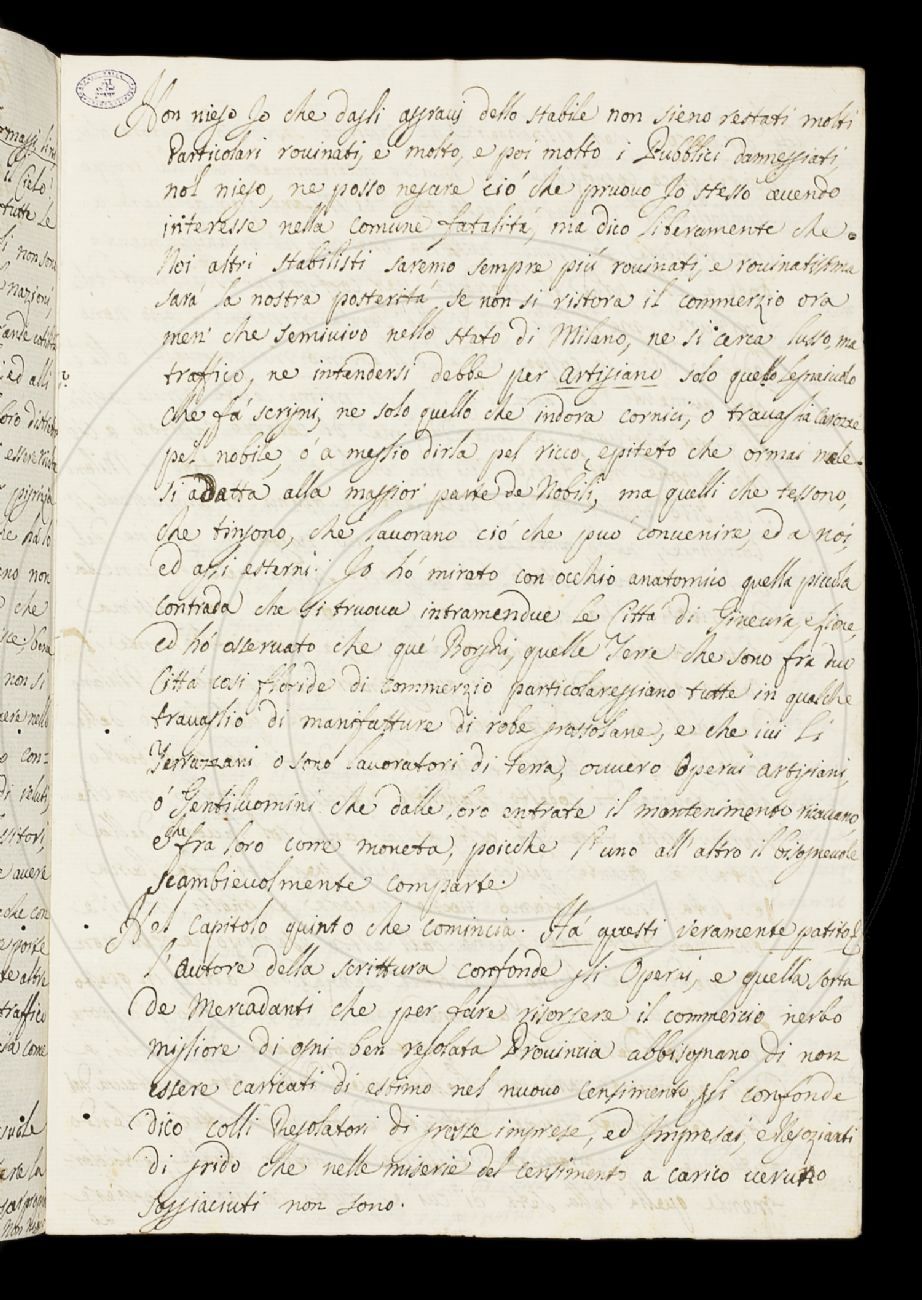 Non niego Jo che dagli aggravj dello stabile non sieno restati molti
Particolari rovinati, e molto, e poi molto i Pubblici danneggiati,
nól niego, ne posso negare ció che pruovo Jo stesso avendo
interesse nella comune fatalitá, ma dico liberamente che
Noi altri stabilisti saremo sempre piú rovinati, e rovinatissima
sará la nostra posteritá, se non si ristora il commerzio ora
men' che semivivo nello stato di Milano, ne si cerca lusso, ma
traffico, ne intendersi debbe per Artigiano solo quello Legnaiuolo
che fá scrigni, ne solo quello che indora cornici, o travaglia Carozze
pel nobile, ó a meglio dirla pel ricco, epiteto che ormai male
si adatta alla maggior parte de Nobili, ma quelli che tessono,
che tingono, che lavorano ció che puó convenire, ed a noi,
ed agi esterni. Jo hó mirato con occhio anatomico quella piccola
contrada che si truova intramendue le Cittá di Ginevra, e Lione,
ed hó osservato che qué Borghi, quelle Terre che sono fra due
Cittá cosi floride di commerzio particolareggiano tutte in qualche
travaglio di manifatture di robe grossolane, e che ivi li
Terrazzani o sono lavoratori di terra, ovvero Operai Artigiani,
ó Gentiluomini che dalle loro entrate il mantenimento ricavano
e che fra loro corre moneta, poicche l'uno all'altro il bisognevole
scambievolmente comparte.
Nel capitolo quinto che comincia. Há questi veramente patito &
l'autore della scrittura confonde gli Operai, e quella sorta
de Mercadanti che per fare risorgere il commercio nerbo
migliore di ogni ben regolata Provincia abbisognano di non
essere caricati di estimo nel nuovo censimento, gli confonde
dico colli Regolatori di grosse imprese, ed Impresai, e Negozianti
di grido che nelle miserie del censimento a carico veruno
soggiaciuti non sono.